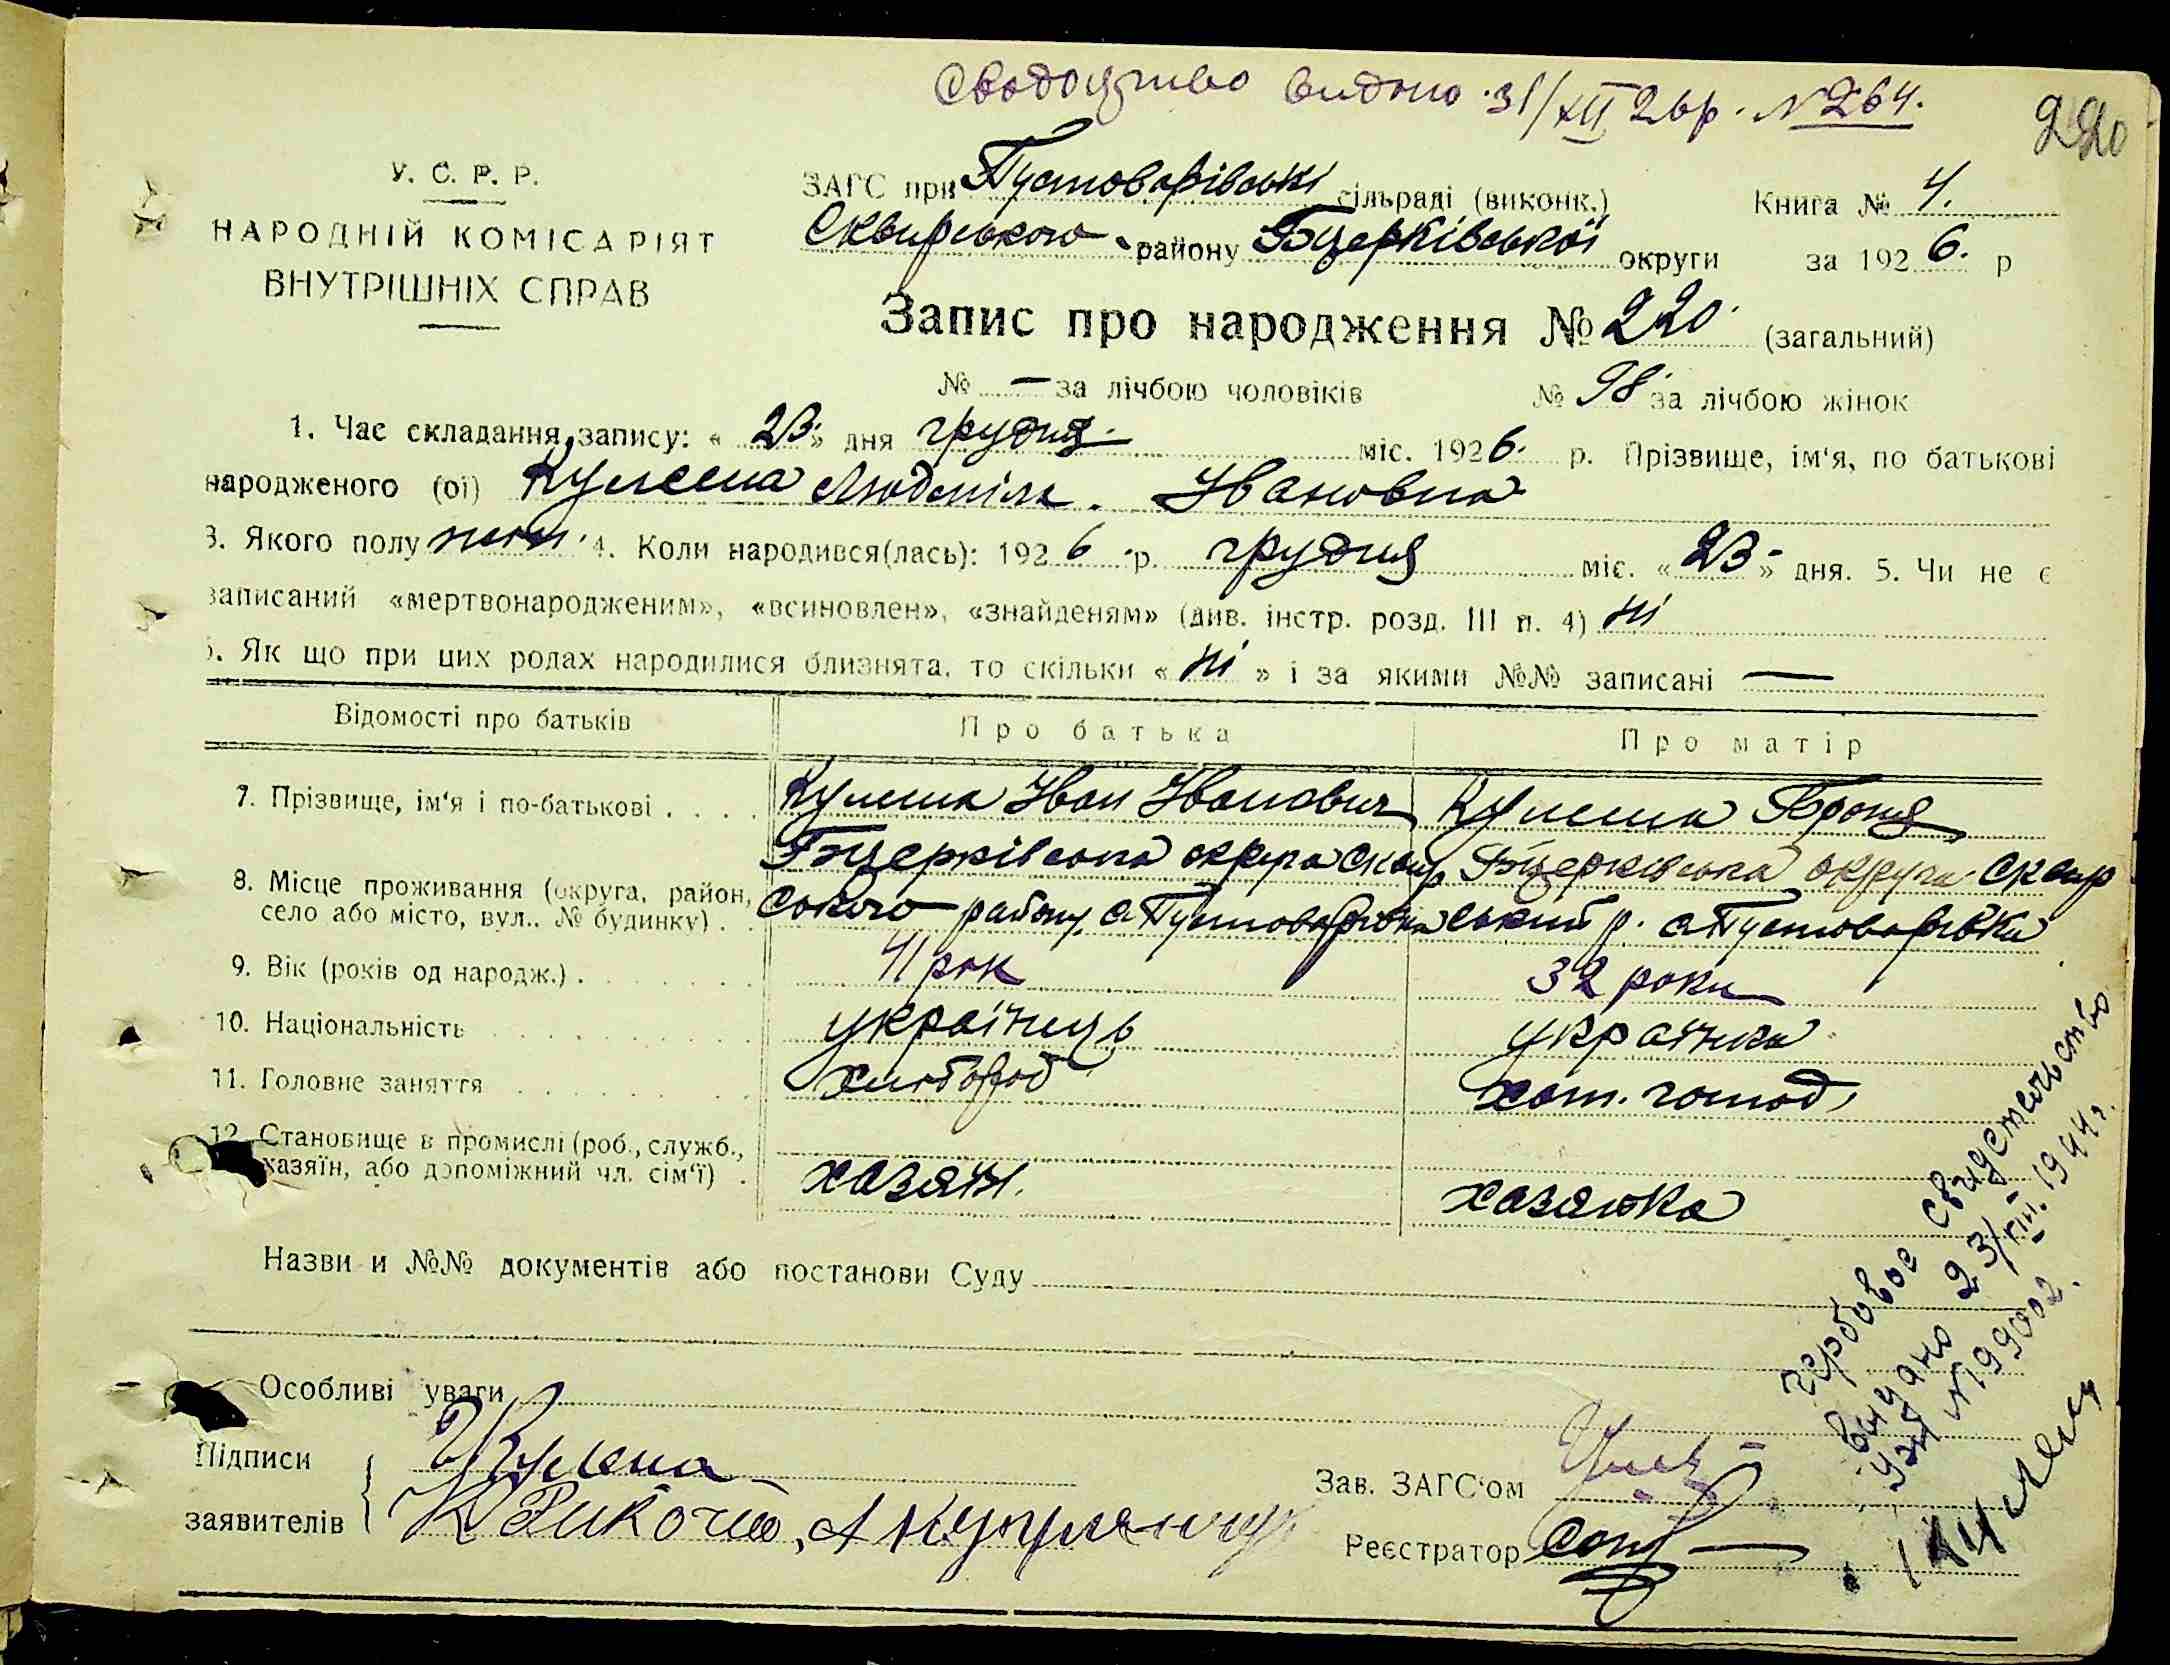 Свідоцтво видано 31/XII 26 р. № 264.
220
У. С. Р. Р.
НАРОДНІЙ КОМІСАРІЯТ
ВНУТРІШНІХ СПРАВ
ЗАГС при Пустоварівські сільраді (виконк.) Книга № 4.
Сквирського району Бцерківської округи за 1926. р
Запис про народження № 220. (загальний)
№ — за лічбою чоловіків № 98 за лічбою жінок
1. Час складання запису: « 23 » дня грудня міс. 1926. р. Прізвище, ім'я, по батькові
народженого (ої) Кулеша Людміла. Івановна
3. Якого полу жін. 4. Коли народився(лась): 1926 р. грудня міс. « 23 » дня. 5. Чи не є
записаний «мертвонародженим», «всиновлен», «знайденям» (див. інстр. розд. III п. 4) ні
6. Як що при цих родах народилися близнята, то скільки « ні » і за якими №№ записані —
Відомості про батьків Про батька Про матір
7. Прізвище, ім'я і по-батькові . . . . Кулеша Іван Іванович Кулеша Броня
8. Місце проживання (округа, район, Бцерківська округа Сквир Бцерківська округа Сквир
село або місто, вул.. № будинку) . . ського району с. Пустоварівка ський р. с. Пустоварівка
9. Вік (років од народж.) . 41 рок 32 роки
10. Національність українць українка
11. Головне заняття хлібороб хат. господ.
12. Становище в промислі (роб., служб.,
хазяїн, або допоміжний чл. сім'ї) . хазяїн. хазяйка
Назви и №№ документів або постанови Суду
Особливі уваги
Підписи И Кулеша
заявителів К
Зав. ЗАГС'ом
Реєстратор
гербовое свидетельство
выдано 23/XII. 1944 г.
УЖ № 199002.